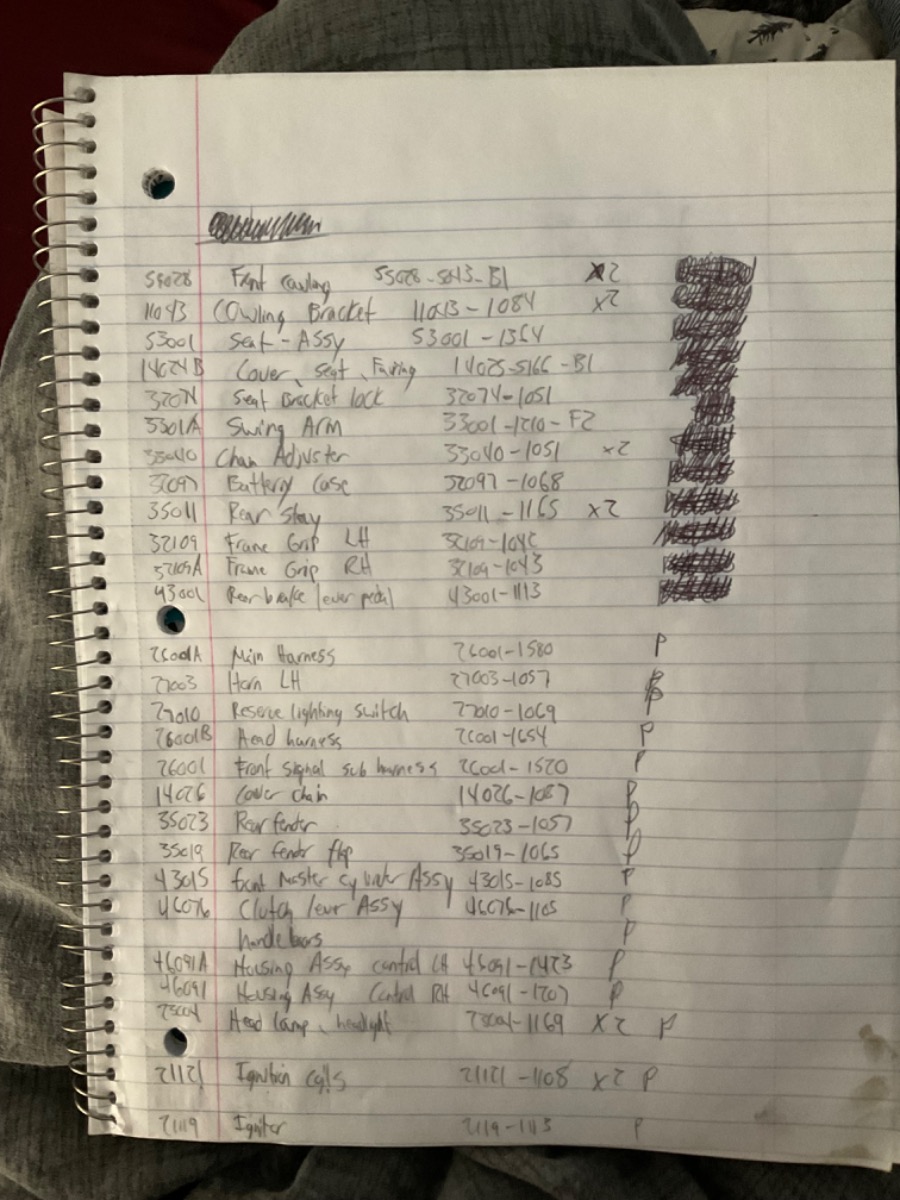 55028 Front Cowling 55028-5043-B1 x2
11043 Cowling Bracket 11043-1084 x2
53001 Seat-Assy 53001-1364
14024B Cover, Seat, Fairing 14025-5166-B1
32074 Seat Bracket lock 32074-1051
3301A Swing Arm 33001-1210-F2
33040 Chain Adjuster 33040-1051 x2
32097 Battery Case 32097-1068
35011 Rear Stay 35011-1165 x2
32109 Frame Grip LH 32109-1042
32109A Frame Grip RH 32109-1043
43001 Rear brake lever pedal 43001-1113
26001A Main Harness 26001-1580 P
27003 Horn LH 27003-1057
27010 Reserve lighting switch 27010-1069
26001B Head harness 26001-1654 P
26001 Front signal sub harness 26001-1520 P
14026 Cover chain 14026-1087 P
35023 Rear fender 35023-1057 P
35019 Rear fender flap 35019-1065 P
43015 front Master cylinder Assy 43015-1085 P
46076 Clutch lever Assy 46076-1105 P
handlebars P
46091A Housing Assy control LH 46091-1423 P
46091 Housing Assy Control RH 46091-1207 P
23004 Head lamp, headlight 23004-1169 x2 P
21121 Ignition coils 21121-1108 x2 P
21119 Igniter 2119-1113 P